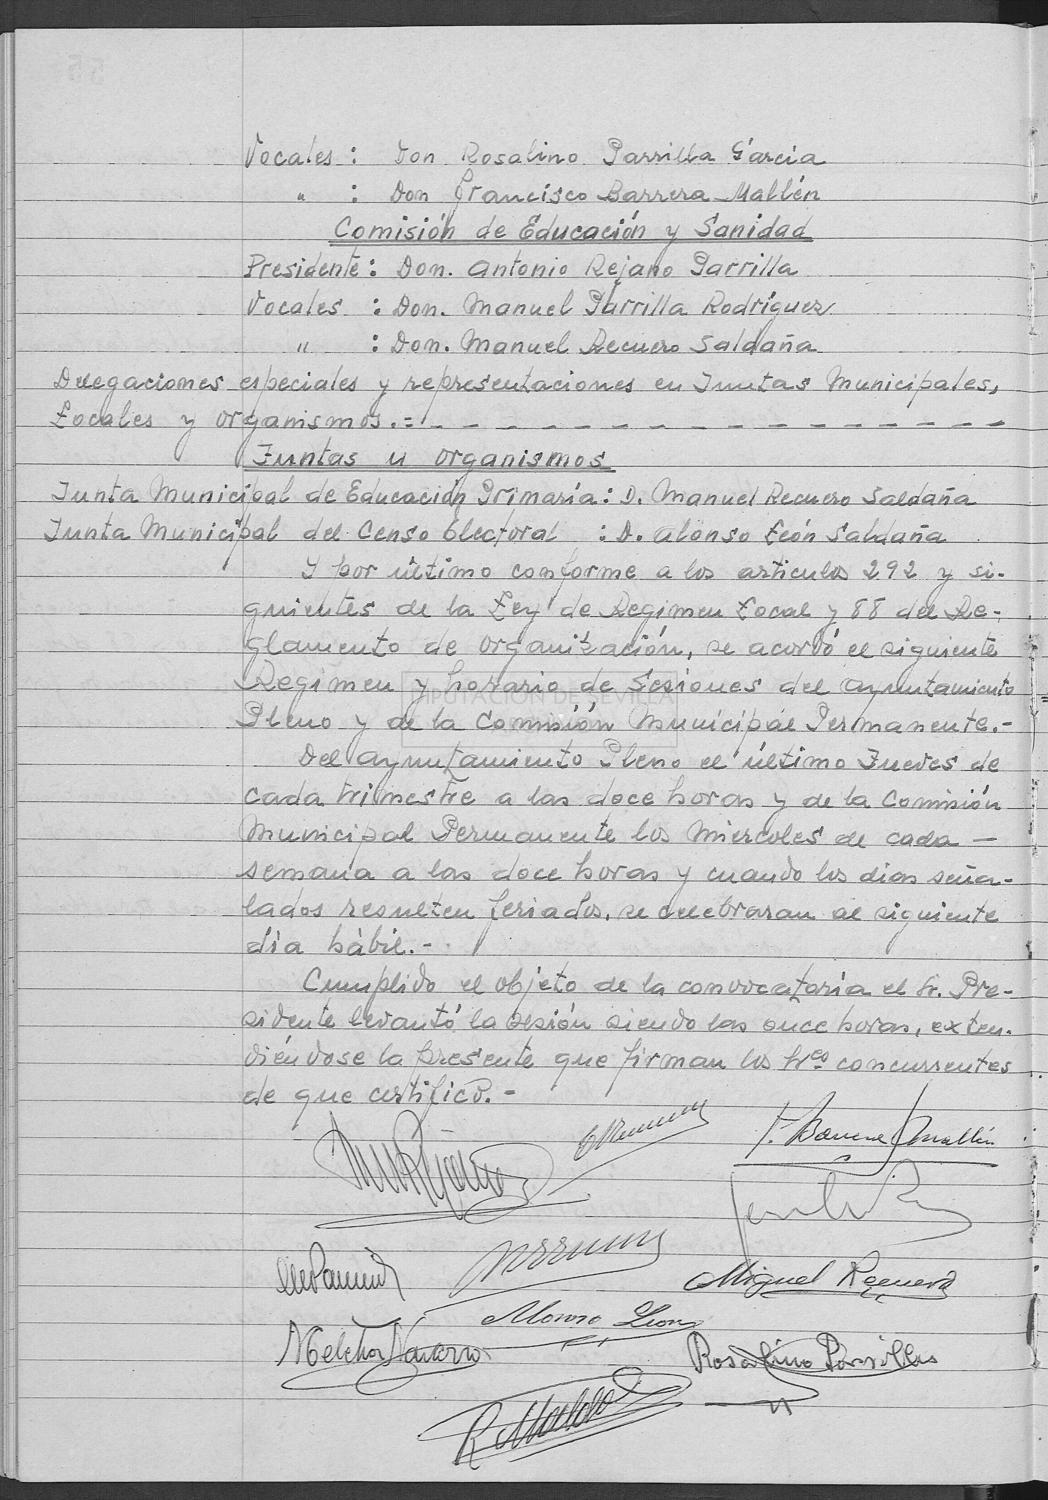 Vocales : Don Rosalino Parrilla García
" : Don Francisco Barrera Mallén
Comisión de Educación y Sanidad
Presidente : Don. Antonio Rejano Parrilla
Vocales : Don. Manuel Parrilla Rodríguez
" : Don. Manuel Recuero Saldaña
Delegaciones especiales y representaciones en Juntas Municipales,
Locales y organismos.=
Juntas u organismos
Junta Municipal de Educación Primaria : D. Manuel Recuero Saldaña
Junta Municipal del Censo Electoral : D. Alonso León Saldaña
Y por último conforme a los articulos 292 y si-
guientes de la Ley de Regimen Local y 88 del Re-
glamento de organización, se acordó el siguiente
Regimen y horario de Sesiones del Ayuntamiento
DIPUTACIÓN DE SEVILLA
Pleno y de la Comisión Municipal Permanente.-
Del Ayuntamiento Pleno el último Jueves de
cada trimestre a las doce horas y de la Comisión
Municipal Permanente los Miercoles de cada —
semana a las doce horas y cuando los dias seña-
lados resulten feriados, se celebraran al siguiente
día hábil.-
Cumplido el objeto de la convocatoria el Sr. Pre-
sidente levantó la sesión siendo las once horas, exten-
diéndose la presente que firman los Sres concurrentes
de que certifico.-
F. Barrera Mallén
Miguel Requera
Alonso León
Melchor Navarro
Rosalino Parrilla